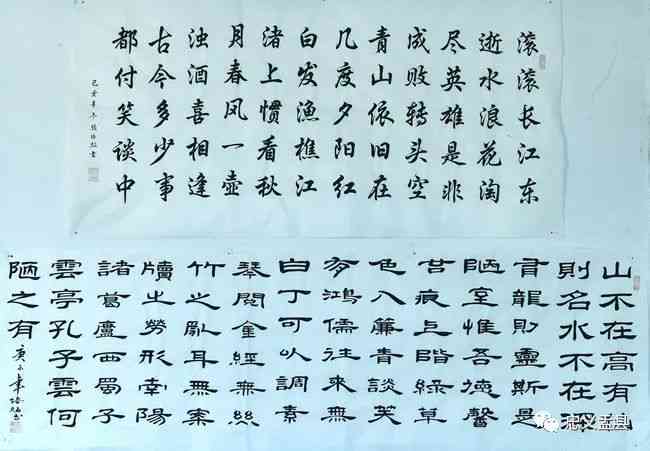 滚滚长江东
逝水浪花淘
尽英雄是非
成败转头空
青山依旧在
几度夕阳红
白发渔樵江
渚上惯看秋
月春风一壶
浊酒喜相逢
古今多少事
都付笑谈中
己亥年冬
山不在高有仙
則名水不在深
有龍則靈斯是
陋室惟吾德馨
苔痕上階綠草
色入簾青談笑
有鴻儒往來無
白丁可以調素
琴閱金經無絲
竹之亂耳無案
牘之勞形南陽
諸葛廬西蜀子
雲亭孔子雲何
陋之有
庚子年
忠义盂县